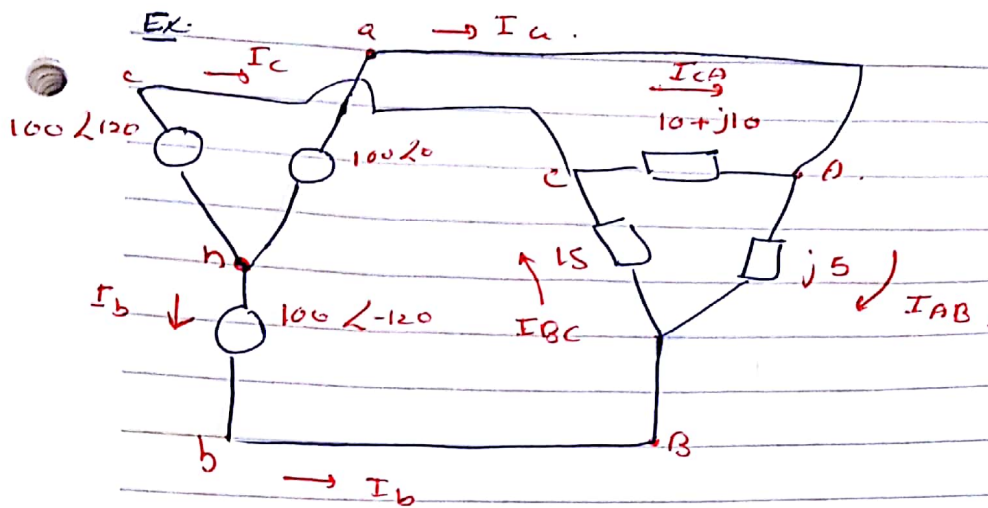 Ex.
a → Ia.
c → Ic
ICA →
10+j10
100∠120
100∠0
C
A.
n
15
j5
Ib ↓
100∠-120
IBC
IAB
b
B
→ Ib